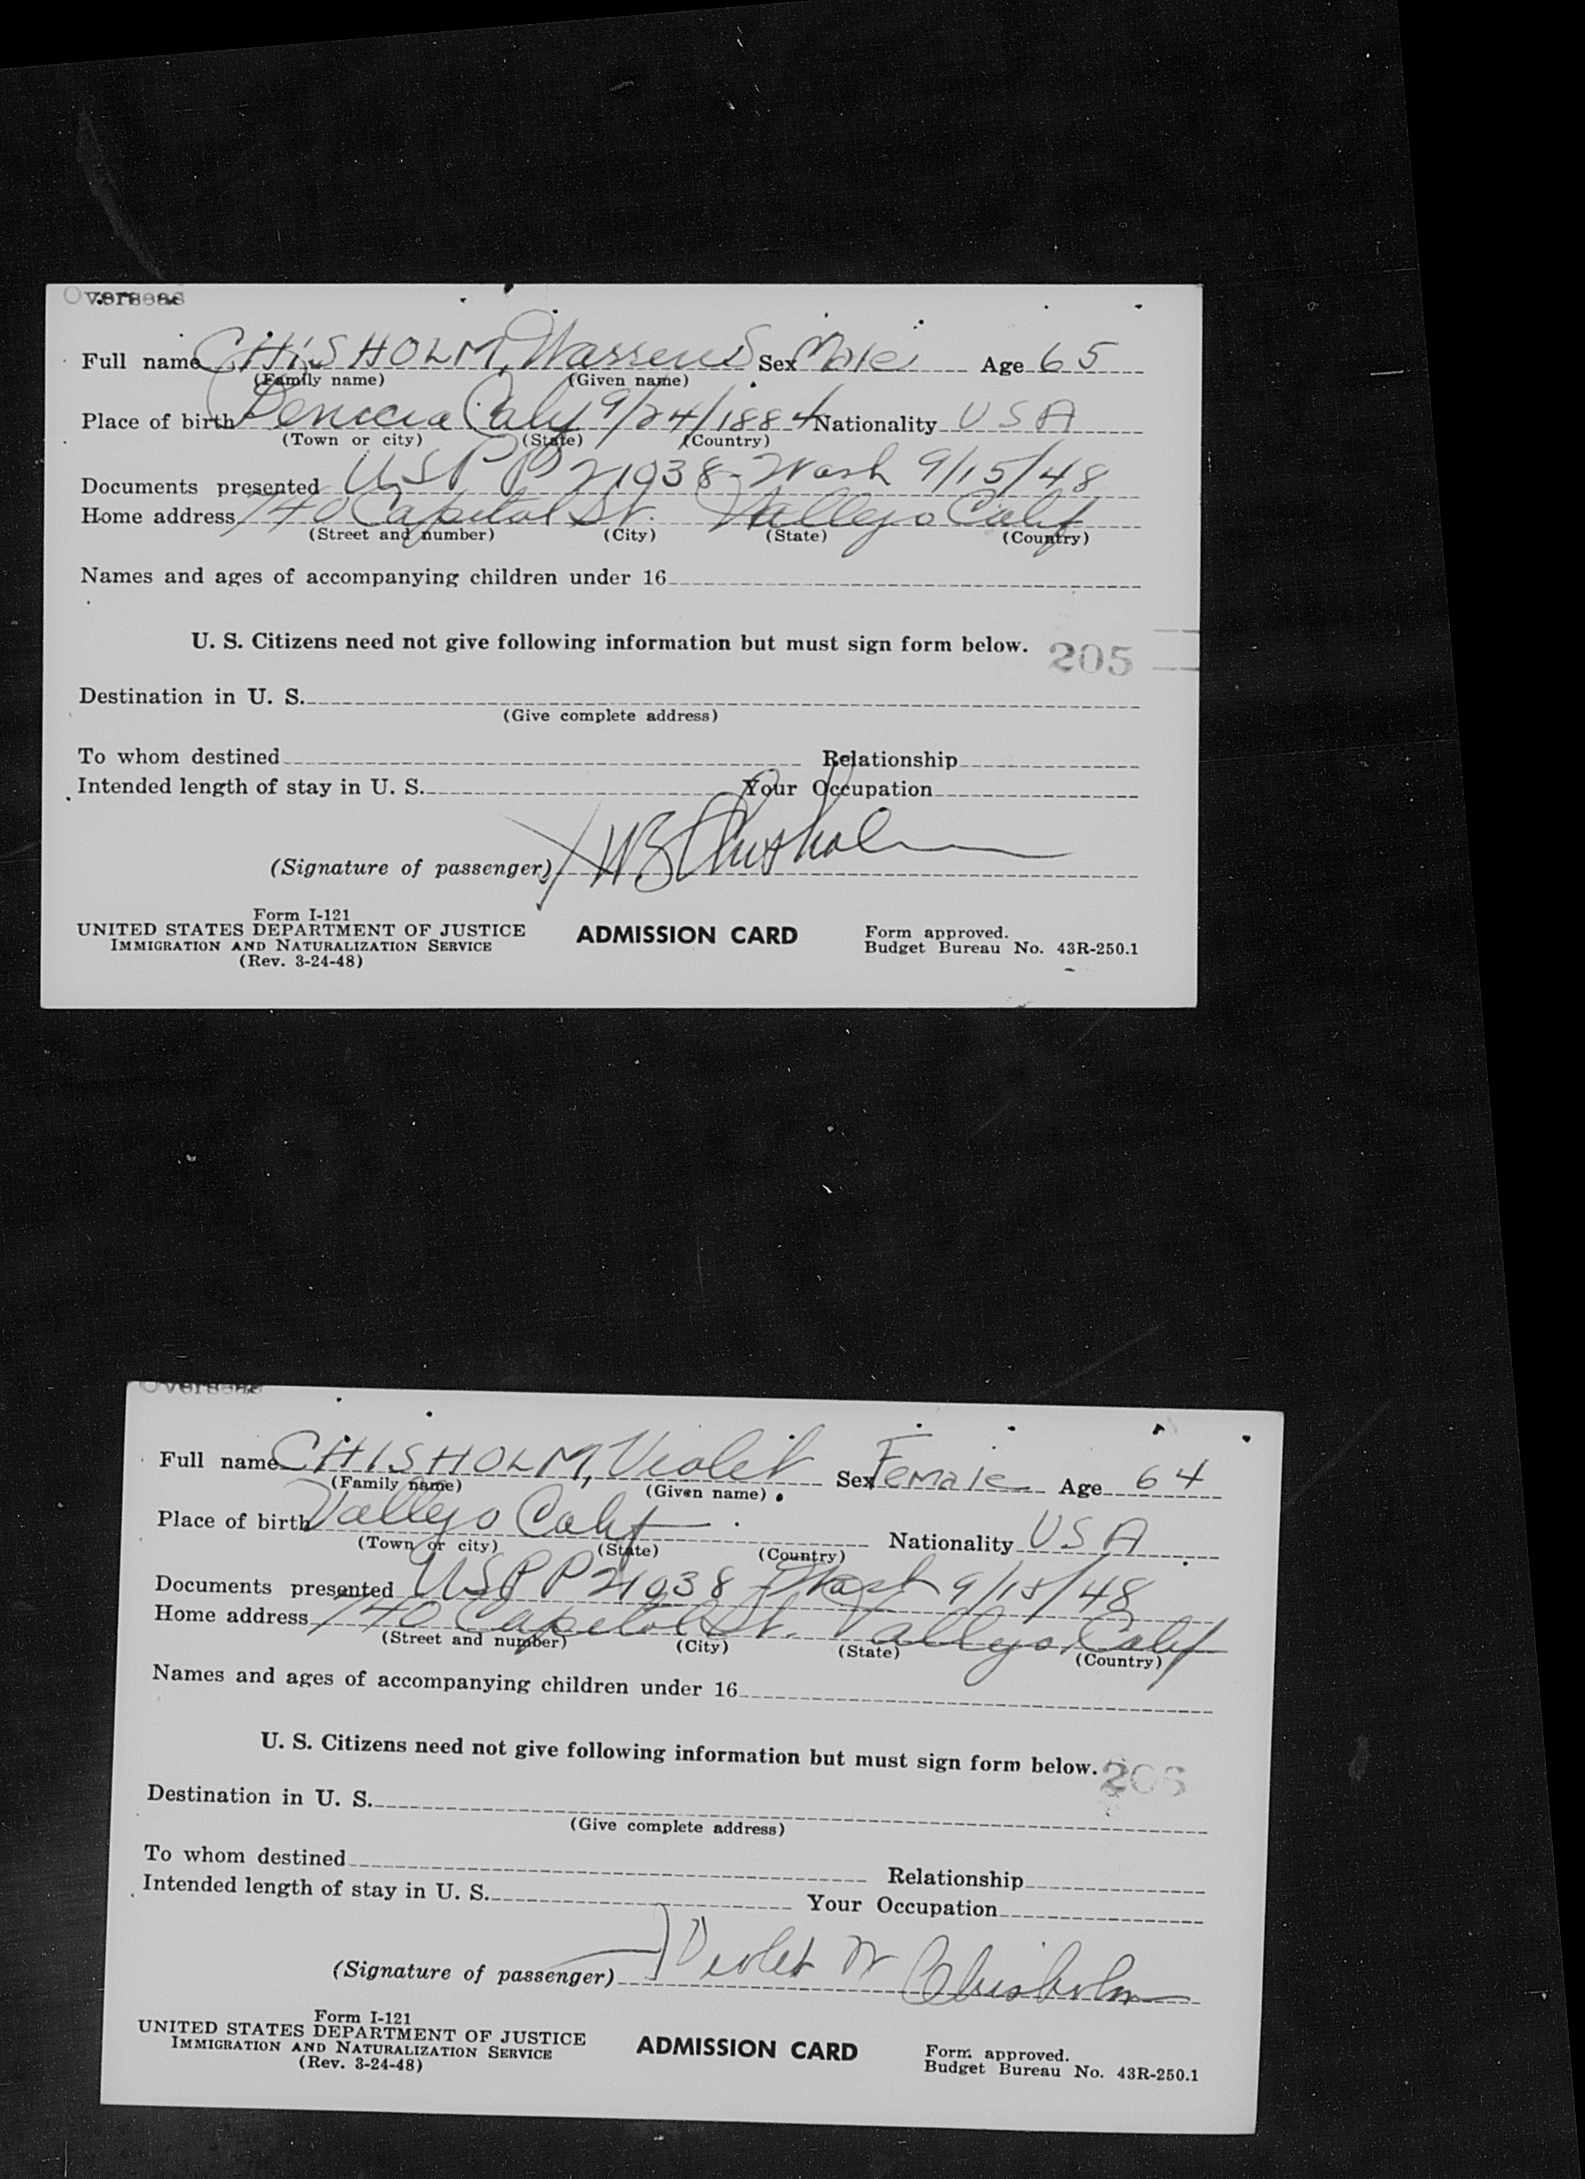 Overseas
Full name CHISHOLM, Warren B Sex Male Age 65
(Family name) (Given name)
Place of birth Benicia Calif 9/24/1884 Nationality USA
(Town or city) (State) (Country)
Documents presented USPP 21038 - Wash 9/15/48
Home address 740 Capitol St. Vallejo Calif
(Street and number) (City) (State) (Country)
Names and ages of accompanying children under 16
U. S. Citizens need not give following information but must sign form below. 205
Destination in U. S.
(Give complete address)
To whom destined Relationship
Intended length of stay in U. S. Your Occupation
(Signature of passenger) X WB Chisholm
Form I-121
UNITED STATES DEPARTMENT OF JUSTICE
IMMIGRATION AND NATURALIZATION SERVICE
(Rev. 3-24-48)
ADMISSION CARD
Form approved.
Budget Bureau No. 43R-250.1
Overseas
Full name CHISHOLM, Violet Sex Female Age 64
(Family name) (Given name)
Place of birth Vallejo Calif Nationality USA
(Town or city) (State) (Country)
Documents presented USPP 21038 Wash 9/15/48
Home address 740 Capitol St. Vallejo, Calif
(Street and number) (City) (State) (Country)
Names and ages of accompanying children under 16
U. S. Citizens need not give following information but must sign form below. 206
Destination in U. S.
(Give complete address)
To whom destined Relationship
Intended length of stay in U. S. Your Occupation
(Signature of passenger) Violet W Chisholm
Form I-121
UNITED STATES DEPARTMENT OF JUSTICE
IMMIGRATION AND NATURALIZATION SERVICE
(Rev. 3-24-48)
ADMISSION CARD
Form approved.
Budget Bureau No. 43R-250.1